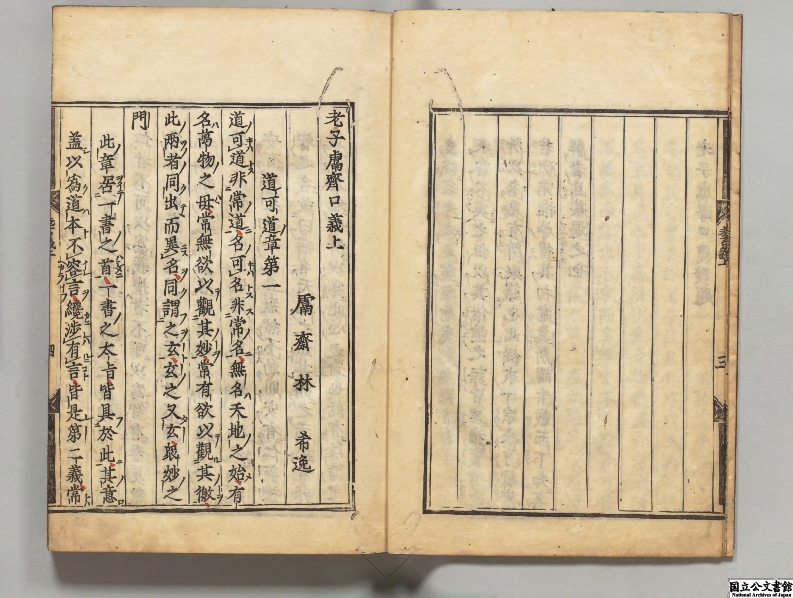 老子鬳齋口義上
鬳齋林 希逸
道可道章第一
道可道非常道名可名非常名無名天地之始有
名萬物之母常無欲以觀其妙常有欲以觀其徼
此兩者同出而異名同謂之玄玄之又玄衆妙之
門
此章居一書之首一書之大旨皆具於此其意
蓋以爲道本不容言纔涉有言皆是第二義常
三
四
国立公文書館
National Archives of Japan